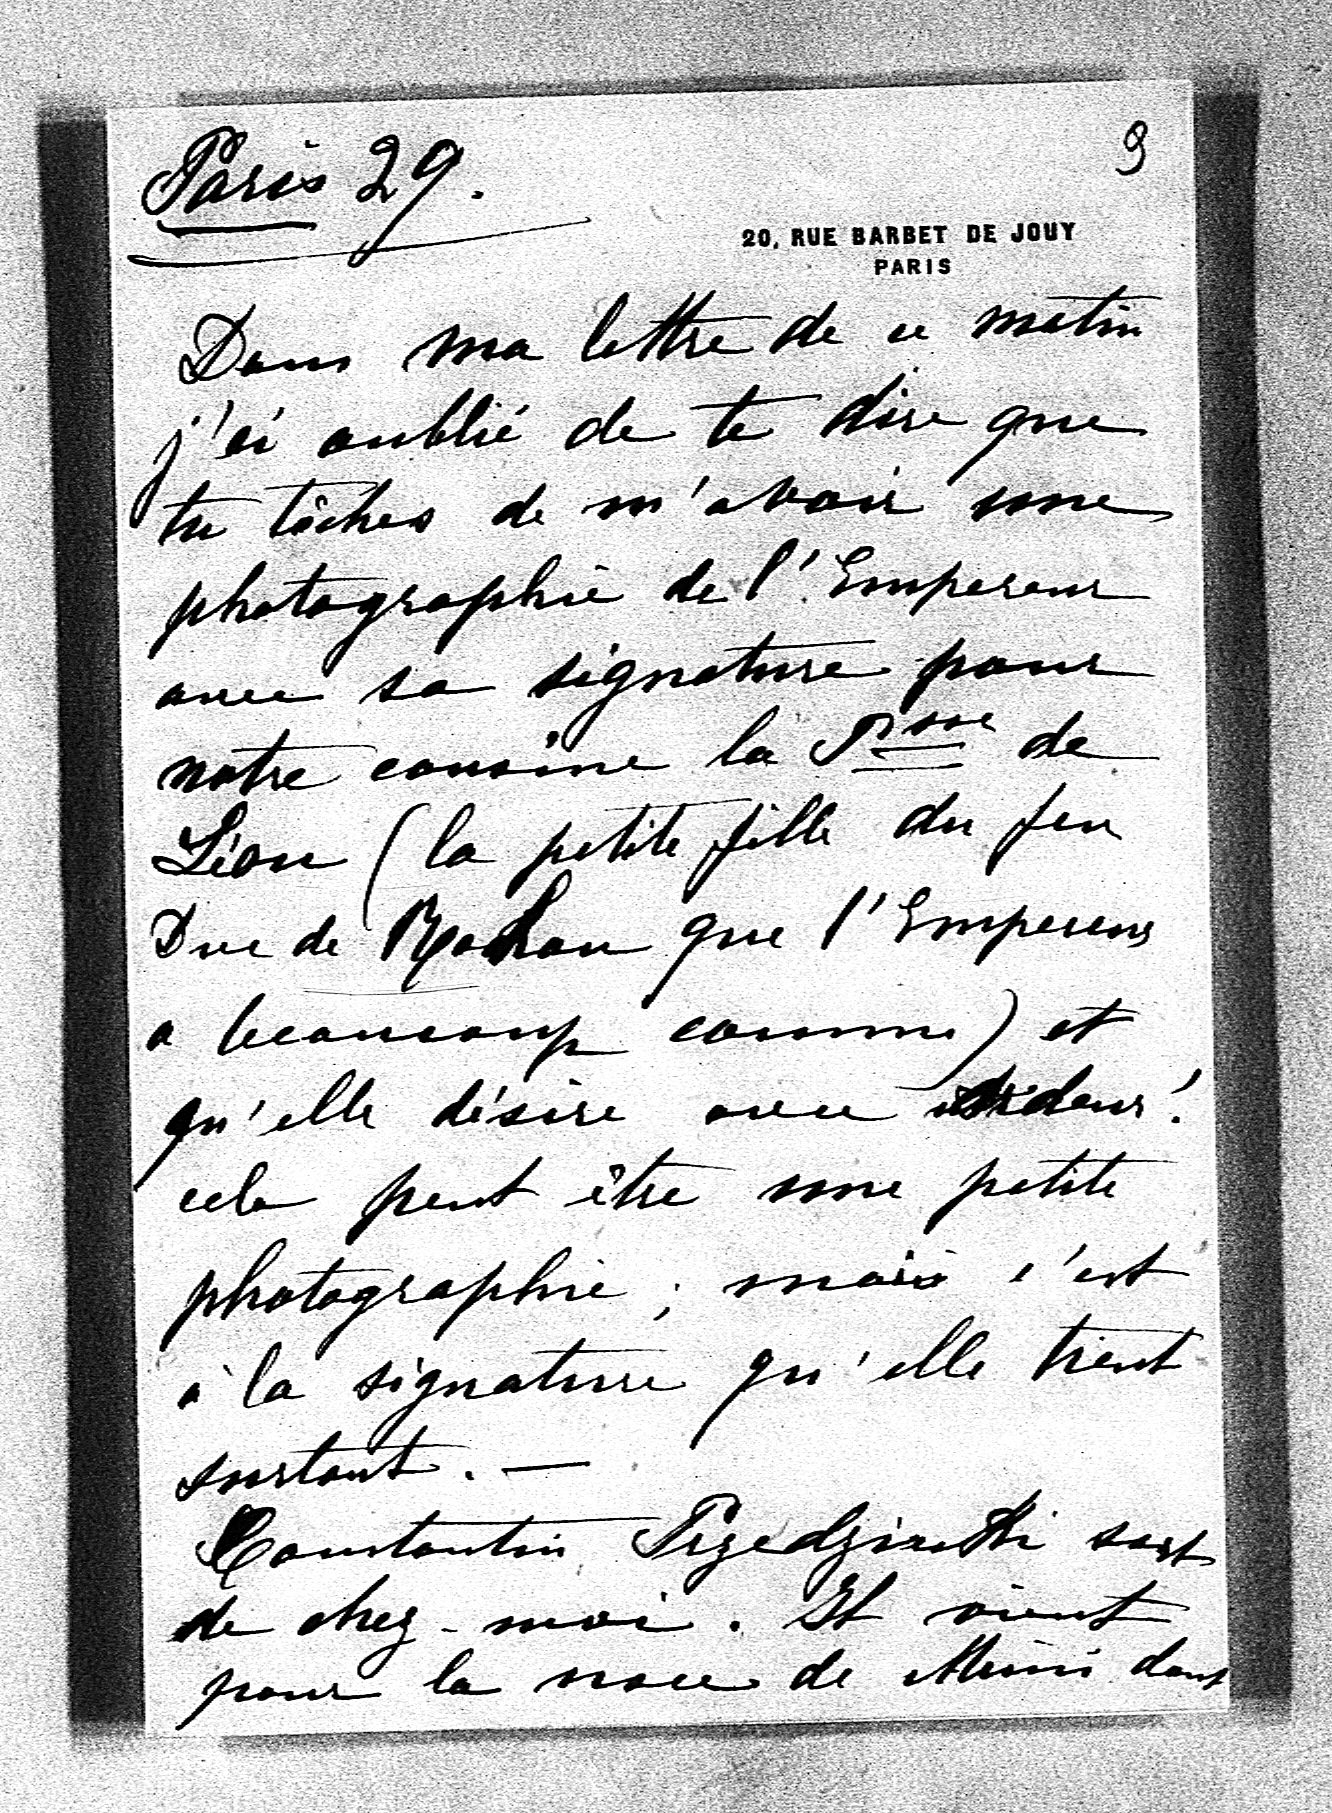 Paris 29.
9
20, RUE BARBET DE JOUY
PARIS
Dans ma lettre de ce matin
j'ai oublié de te dire que
tu tâches de m'avoir une
photographie de l'Empereur
avec sa signature pour
notre cousine la Psse de
Léon (la petite fille du feu
Duc de Rohan que l'Empereur
a beaucoup connu) et
qu'elle désire avec ardeur!
cela peut être une petite
photographie; mais c'est
à la signature qu'elle tient
surtout. —
Constantin Przedziecki sort
de chez-moi. Il vient
pour la noce de Mimi dont